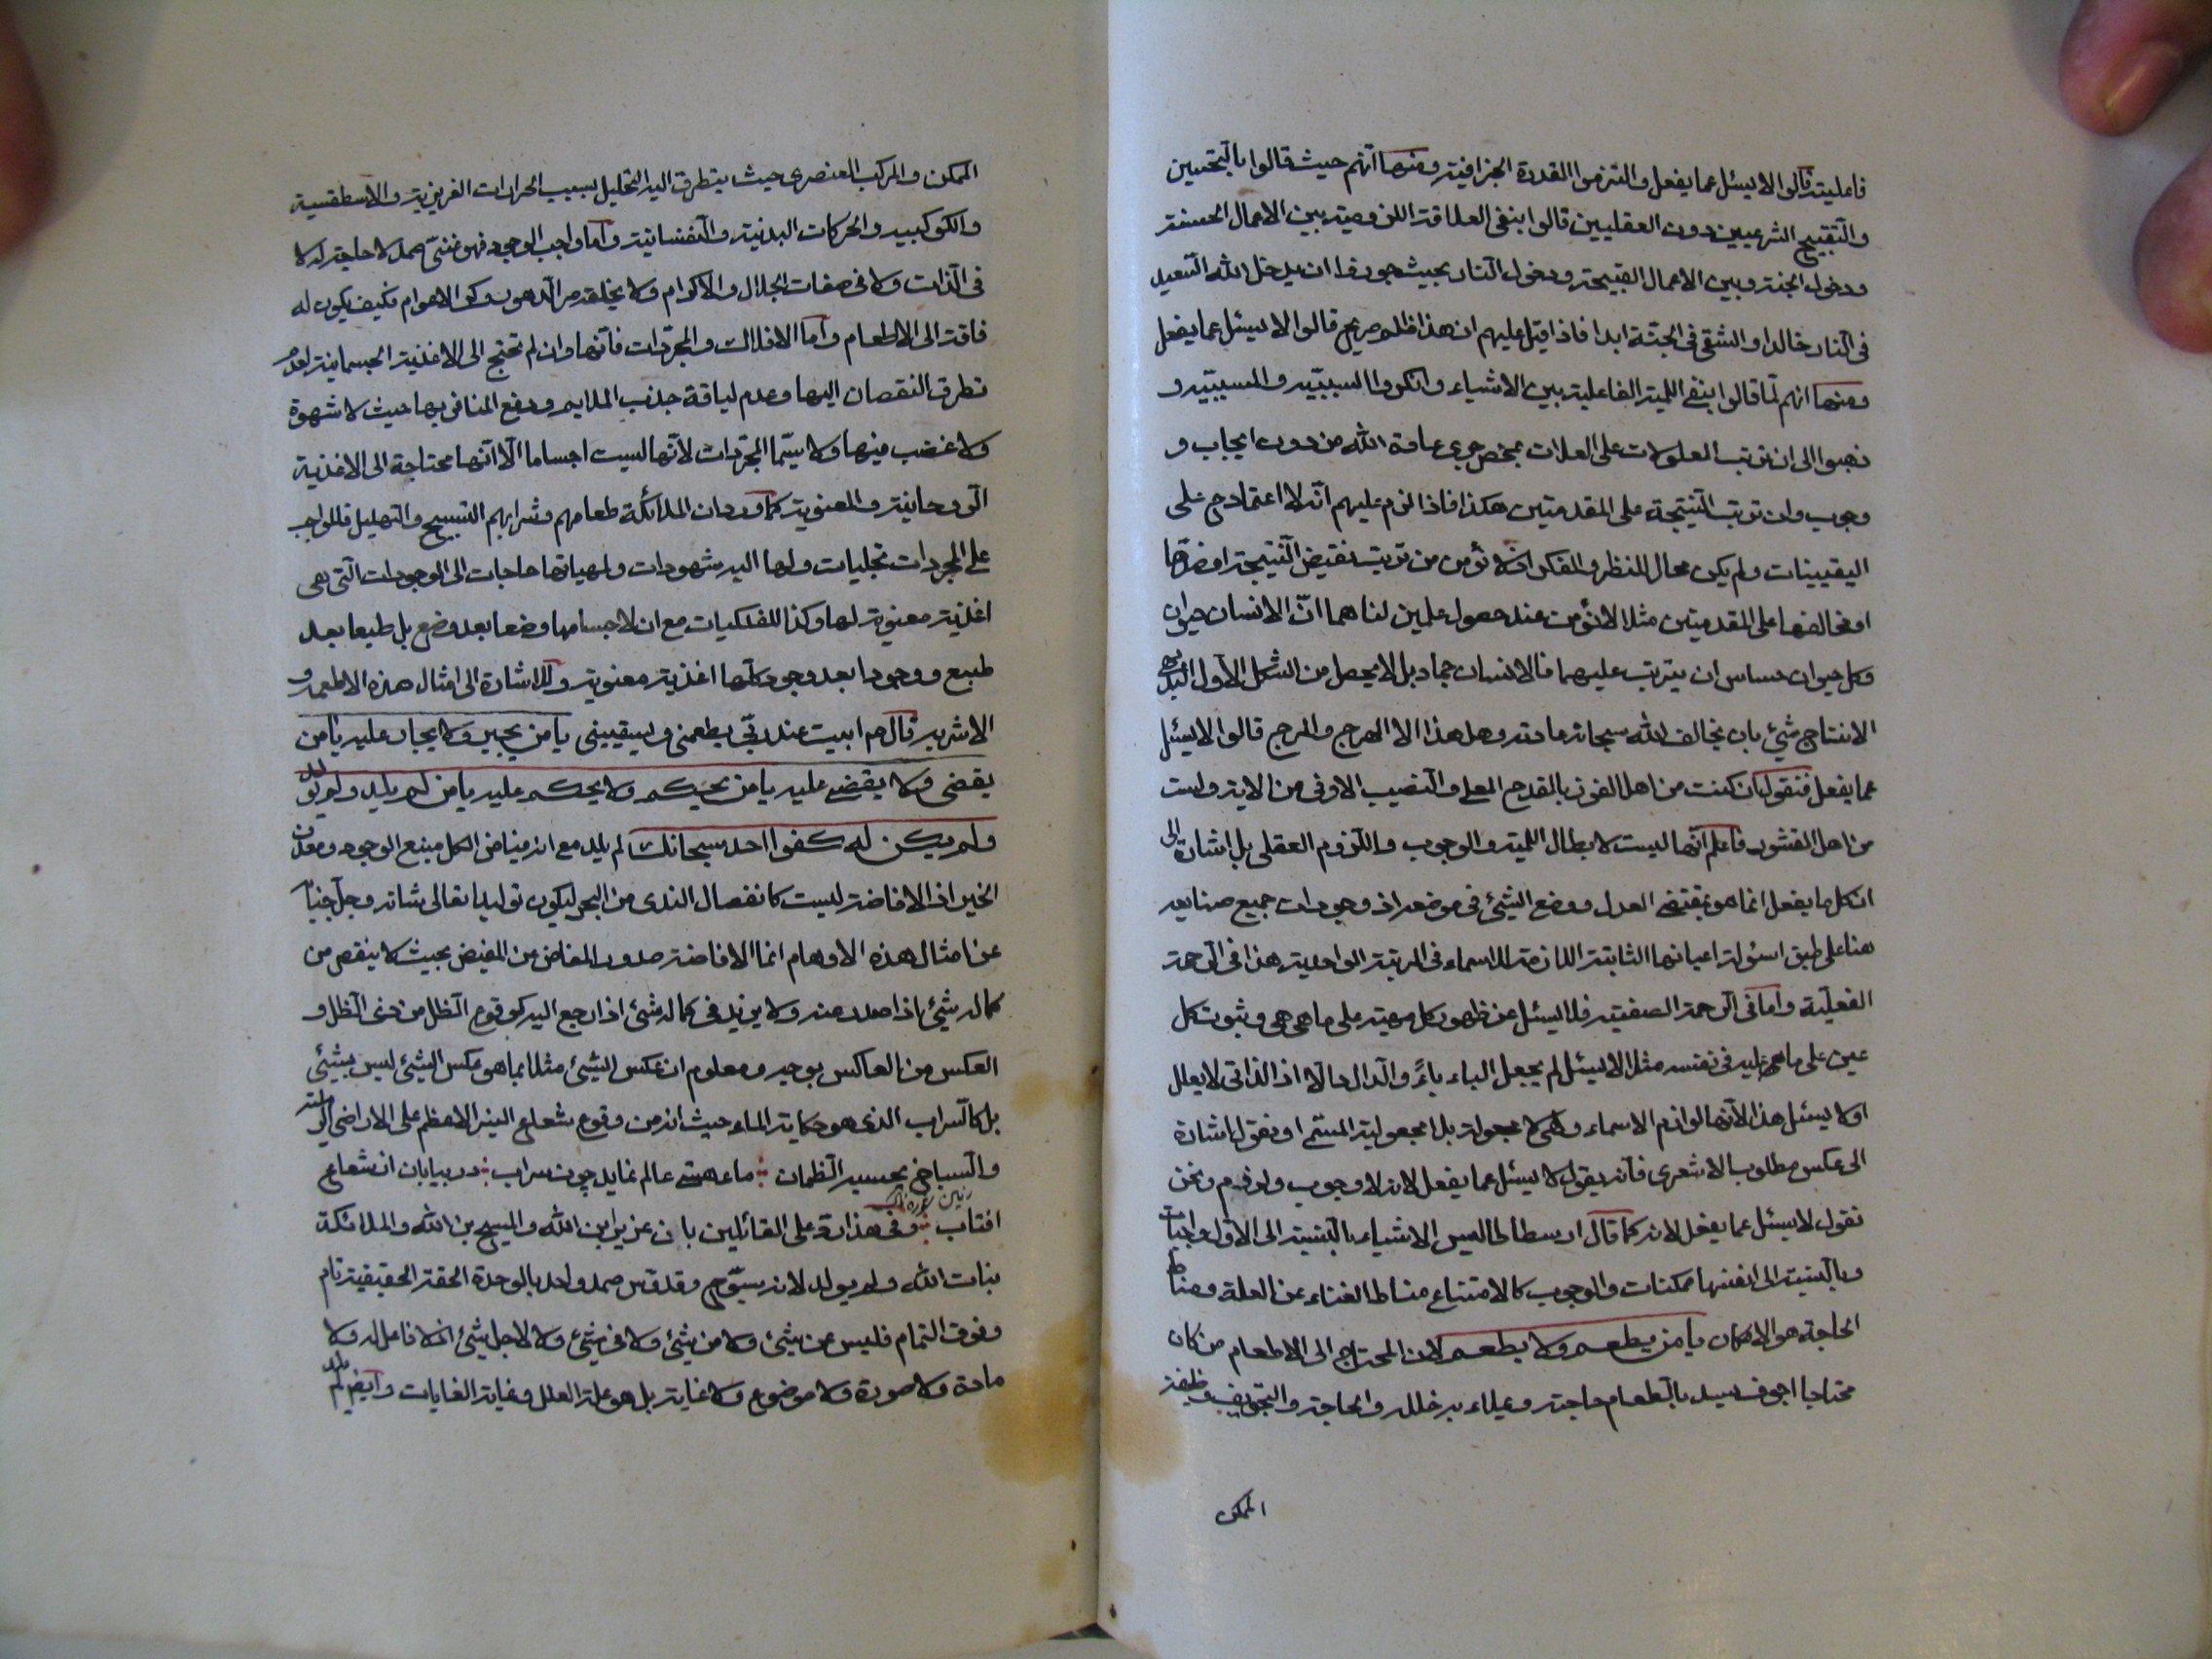 فاعلية قالوا لا يسئل عما يفعل والتزموا القدرة الجزافية ومنها انهم حيث قالوا بالتحسين
والتقبيح الشرعيين دون العقليين قالوا بنفى العلاقة اللزومية بين الاعمال الحسنة
ودخول الجنة وبين الاعمال القبيحة ودخول النار بحيث جوزوا ان يدخل الله السعيد
فى النار خالدا والشقى فى الجنة ابدا فاذا قيل عليهم ان هذا ظلم صريح قالوا لا يسئل عما يفعل
ومنها انهم لما قالوا بنفى اللمية الفاعلية بين الاشياء وانكروا السببية والمسببية و
ذهبوا الى ان ترتب المعلولات على العلات بمحض جرى عادة الله من دون ايجاب و
وجوب وان ترتب النتيجة على المقدمتين هكذا فاذا الزم عليهم انه لا اعتماد ح على
اليقينيات ولم يكن مجال للنظر والفكر اذ لا نؤمن من ترتب نقيض النتيجة او ضدها
او مخالفها على المقدمتين مثلا لا نؤمن عند حصول علمين لنا هما ان الانسان حيوان
وكل حيوان حساس ان يترتب عليهما فالانسان جماد بل لا يحصل من الشكل الاول البديهى
الانتاج شئ بان يخالف الله سبحانه عادته وهل هذا الا الهرج والمرج قالوا لا يسئل
عما يفعل فنقول ان كنت من اهل الفوز بالقدح المعلى والنصيب الاوفى من الاية ولست
من اهل القشور فاعلم انها ليست لابطال اللمية والوجوب واللزوم العقلى بل اشارة الى
ان كل ما يفعل انما هو بمقتضى العدل ووضع الشئ فى موضعه اذ وجودات جميع صنايعه
هنا على طبق اسئولة اعيانها الثابتة اللازمة للاسماء فى المرتبة الواحدية هذا فى الرحمة
الفعلية واما فى الرحمة الصفتية فلا يسئل عن ظهور كل مهية على ما هى هى وثبوت كل
عين على ما هى عليه فى نفسه مثلا لا يسئل لم يجعل الباء باءً والدال دالا اذ الذاتى لا يعلل
او لا يسئل هذا لانها لوازم الاسماء ولا مجعولة بلا مجعولية المسمى او نقول اشارة
الى عكس مطلوب الاشعرى فانه يقول لا يسئل عما يفعل لانه لا وجوب ولا لزوم ونحن
نقول لا يسئل عما يفعل لانه كما قال ارسطاطاليس الاشياء بالنسبة الى الاول واجبات
وبالنسبة الى انفسها ممكنات والوجوب كالامتناع مناط الغناء عن العلة ومناط
الحاجة هو الامكان يا من يطعم ولا يطعم لان المحتاج الى الاطعام من كان
محتاجا اجوف يسد بالطعام حاجته ويملاء به خلله والحاجة والتجويف وظيفة
الممكن
الممكن والمركب العنصرى حيث يتطرق اليه التحليل بسبب الحرارات الغريزية والاسطقسية
والكوكبية والحركات البدنية والنفسانية واما واجب الوجود فهو غنى صمد لا حاجة له لا
فى الذات ولا فى صفات الجلال والاكرام ولا يخلقه مر الدهور وكر الاعوام فكيف يكون له
فاقة الى الاطعام واما الافلاك والمجردات فانها وان لم تحتج الى الاغذية الجسمانية لعدم
تطرق النقصان اليها وعدم لياقة جذب الملايم ودفع المنافى بها حيث لا شهوة
ولا غضب فيها ولا سيما المجردات لانها ليست اجساما الا انها محتاجة الى الاغذية
الروحانية والمعنوية كما ورد ان الملائكة طعامهم وشرابهم التسبيح والتهليل فللواجب
على المجردات تجليات ولها اليه شهودات ولمهياتها حاجات الى الوجودات التى هى
اغذية معنوية لها وكذا للفلكيات مع ان لاجسامها وضعا بعد وضع بل طبعا بعد
طبع ووجودا بعد وجود كلها اغذية معنوية وللاشارة الى امثال هذه الاطعمة و
الاشربة قال ص ابيت عند ربى يطعمنى ويسقينى يا من يجير ولا يجار عليه يا من
يقضى ولا يقضى عليه يا من يحكم ولا يحكم عليه يا من لم يلد ولم يولد
ولم يكن له كفوا احد سبحانك لم يلد مع انه فياض الكل منبع الوجود ومعدن
الخير اذ الافاضة ليست كانفصال الندى من البحر ليكون توليدا تعالى شانه وجل جنابه
عن امثال هذه الاوهام انما الافاضة صدور المفاض من المفيض بحيث لا ينقص من
كماله شئ اذا صدر منه ولا يزيد فى كماله شئ اذا رجع اليه كوقوع الظل من ذى الظل و
العكس من العاكس بوجه ومعلوم ان عكس الشئ مثلا بما هو عكس الشئ ليس بشئ
بل كالسراب الذى هو حكاية الماء حيث انه من وقوع شعاع النير الاعظم على الاراضى الرملية
والسباخ يحسبه الظمان ماء هستى عالم نمايد چون سراب در بيابان از شعاع
افتاب وفى هذا رد على القائلين بان عزير ابن الله والمسيح بن الله والملائكة
بنات الله ولم يولد لانه سبوح وقدوس صمد واحد بالوحدة الحقة الحقيقية تام
وفوق التمام فليس عن شئ ولا من شئ ولا فى شئ ولا لاجل شئ اذ لا فاعل له ولا
مادة ولا صورة ولا موضوع ولا غاية بل هو علة العلل وغاية الغايات وايضا لم يلد